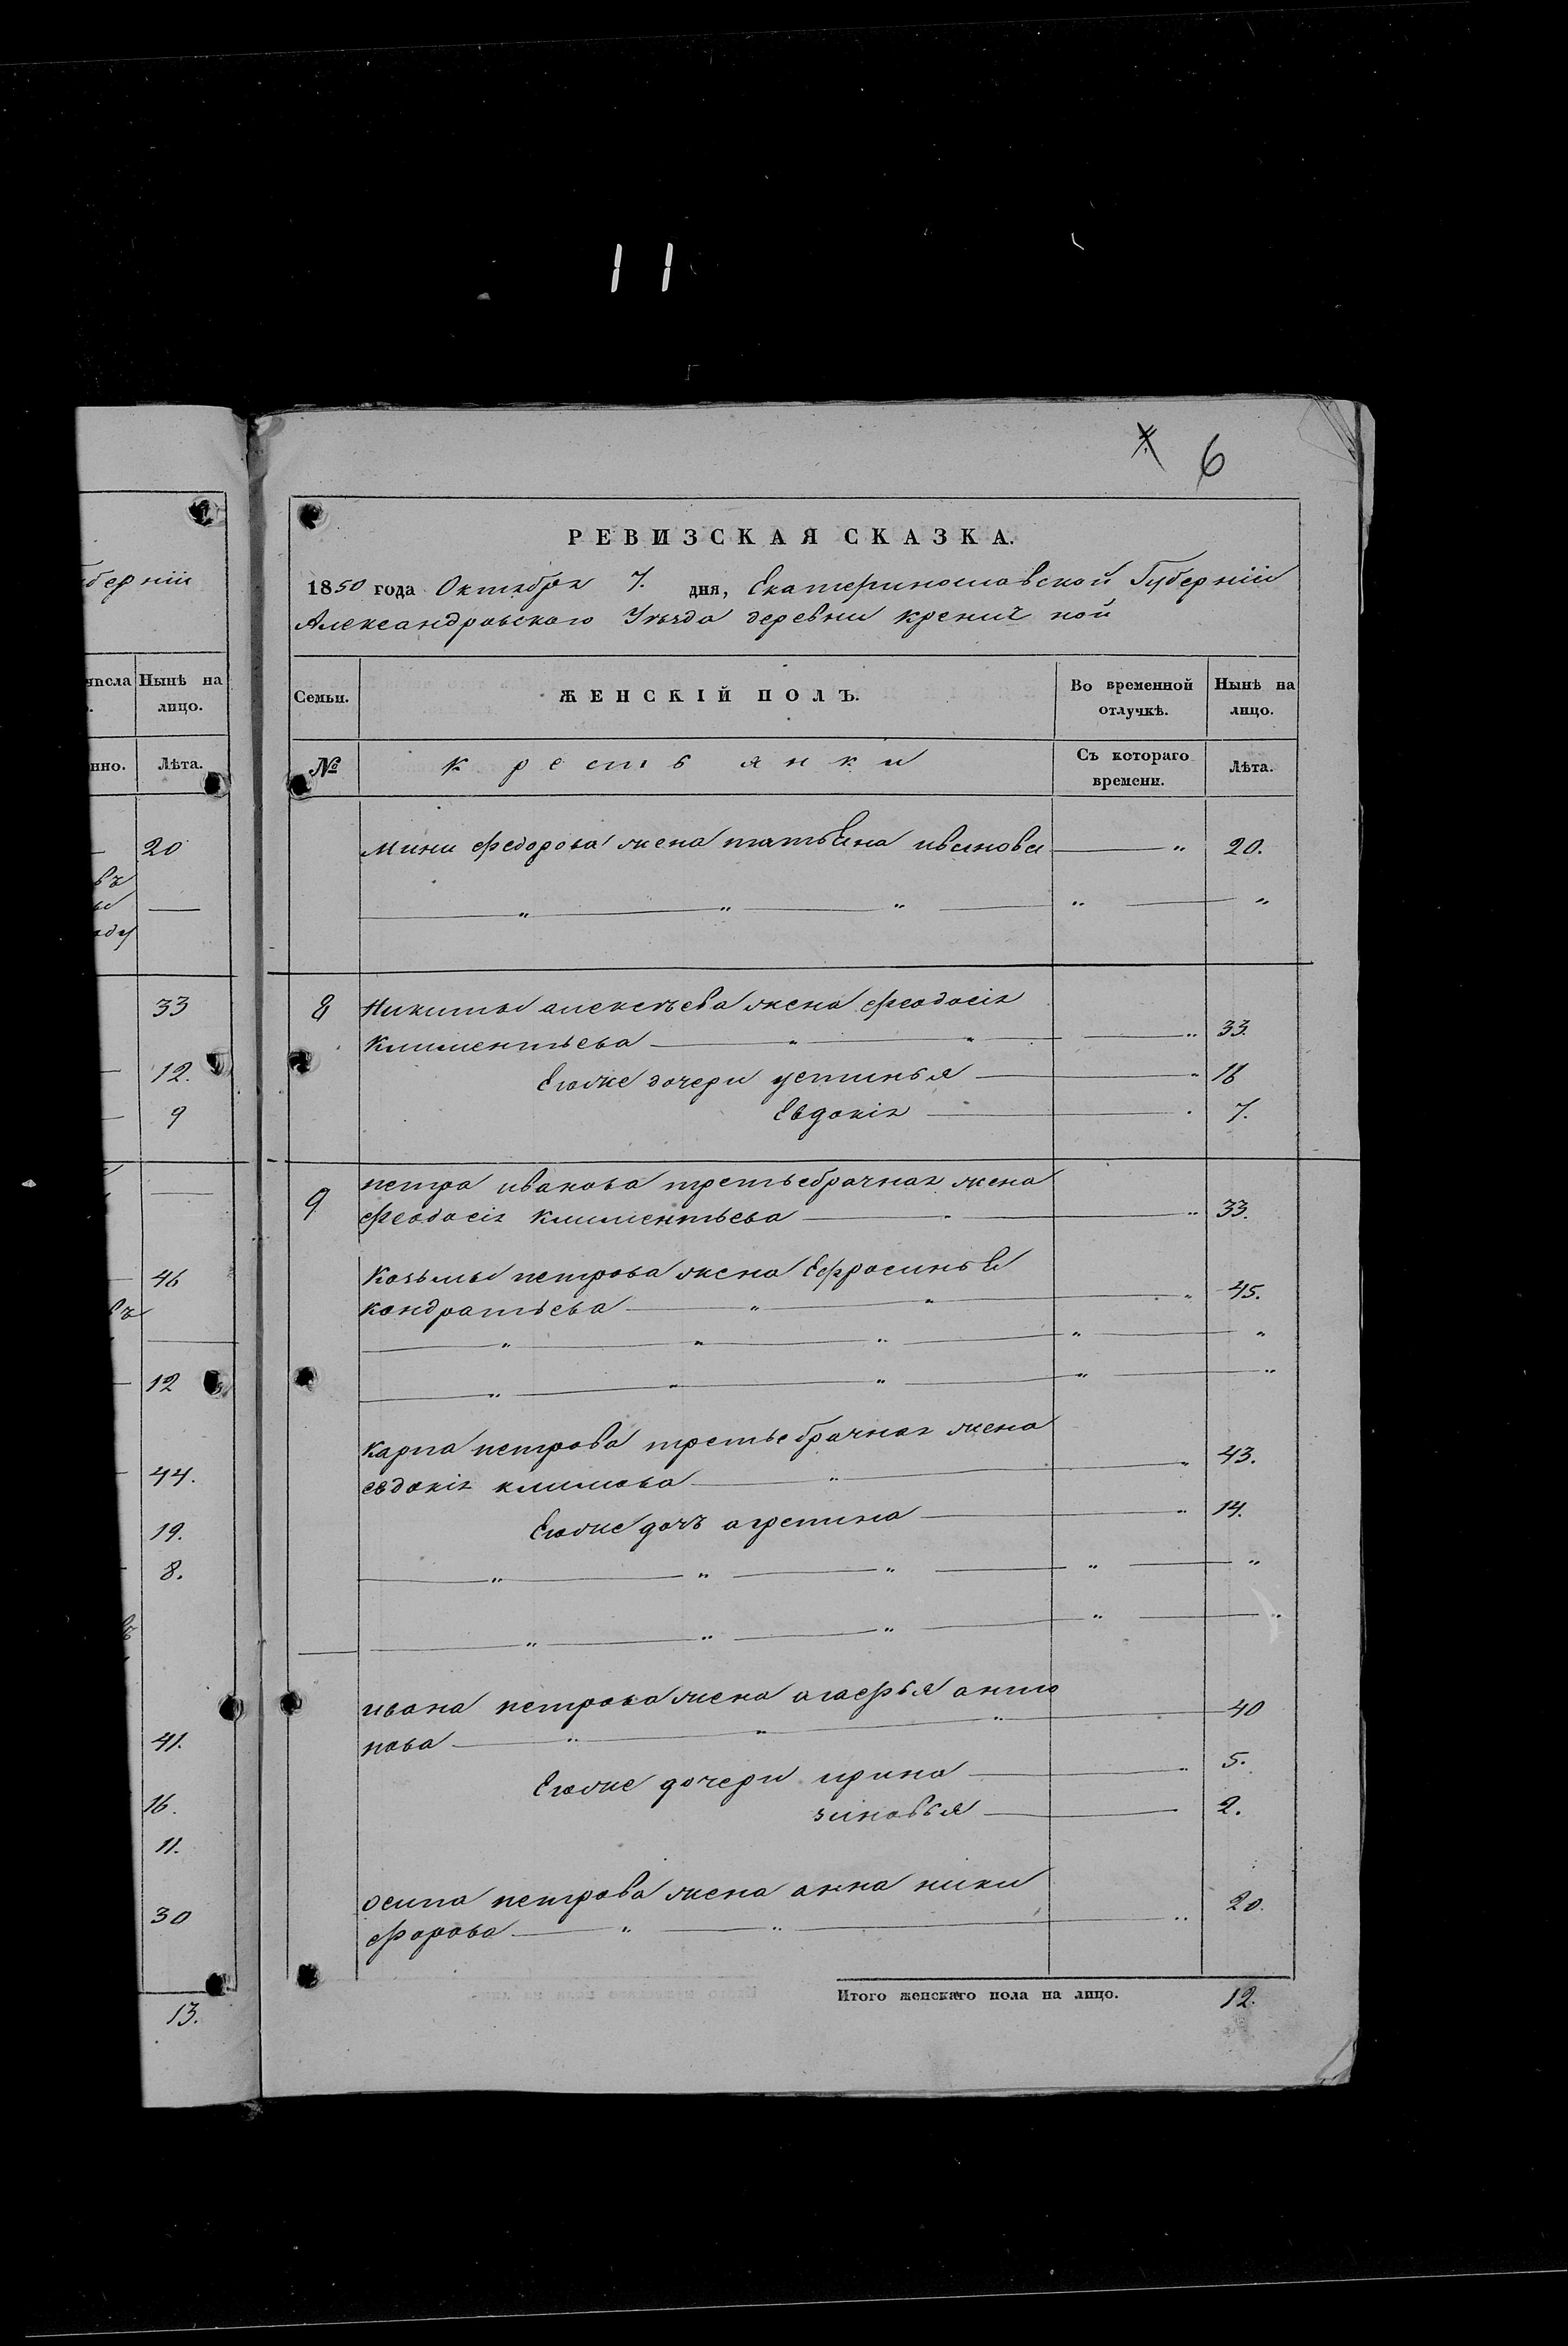 11
6
РЕВИЗСКАЯ СКАЗКА.
1850 года Октября 7. дня, Екатеринославской Губерніи
Александровского Уѣзда деревни кренич ной
Семьи.
ЖЕНСКІЙ ПОЛЪ.
Во временной отлучкѣ.
Нынѣ на лицо.
№
крестьянки
Съ котораго времени.
Лѣта.
Мини Федорова жена татьяна иванова — " 20.
" " " " "
8 Никиты алексѣева жена Феодосія
Климентьева — " " " 33.
Егоже дочери устинья — " 18
Евдокія — 7.
9 петра иванова третьебрачная жена
Феодосія Климентьева — " " 33.
Козьмы петрова жена Ефросинья
кондратьева — " " " 45.
" " " " "
" " " " "
карпа петрова третьебрачная жена
евдокія климова — " " 43.
Егоже дочь агрепина — " 14.
" " " " "
" " " " "
ивана петрова жена агафья анто
нова — " " " 40
Егоже дочери ирина — " 5.
зиновья — 2.
осипа петрова жена анна ники
форова — " " " 20.
Итого женскаго пола на лицо. 12.
губерніи
числа
Нынѣ на лицо.
нно.
Лѣта.
20
въ
33
12.
9
46
въ
12
44.
19.
8.
41.
16.
11.
30
13.